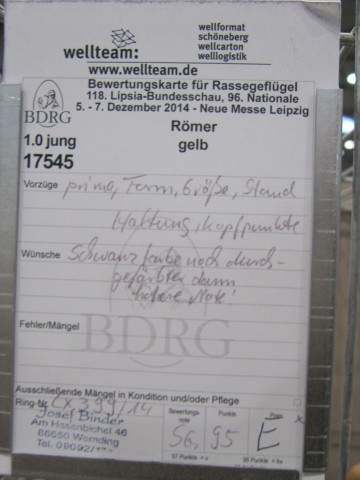 wellformat
schöneberg
wellcarton
welllogistik
wellteam:
www.wellteam.de
Bewertungskarte für Rassegeflügel
118. Lipsia-Bundesschau, 96. Nationale
5. - 7. Dezember 2014 - Neue Messe Leipzig
BDRG
Römer
1.0 jung
gelb
17545
Vorzüge prima, Form, Größe, Stand
Haltung, Kopfpunkte
Wünsche Schwanzfarbe noch durch-
gefärbter dann
höhere Note!
Fehler/Mängel
BDRG
Ausschließende Mängel in Kondition und/oder Pflege
Ring-Nr. CX 399/14
Josef Binder
Am Hasenbichel 46
86650 Wemding
Tel. 09092/
Bewertungs-
note
Punkte
Preis
SG, 95 E
97 Punkte = v
96 Punkte = hv